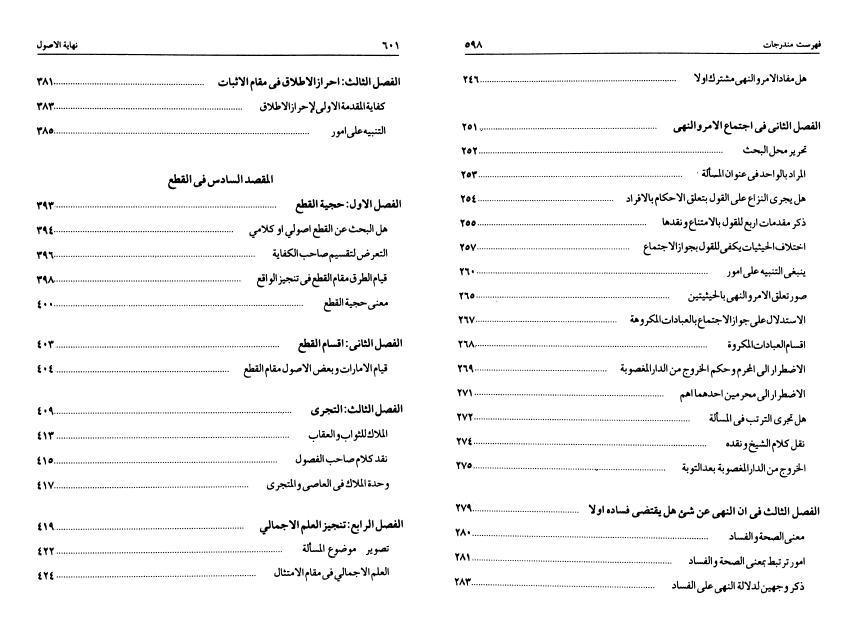 فهرست مندرجات ٥٩٨
هل مفاد الامر و النهى مشترك اولا ٢٤٦
الفصل الثانى فى اجتماع الامر و النهى ٢٥١
تحرير محل البحث ٢٥٢
المراد بالواحد فى عنوان المسألة ٢٥٣
هل يجرى النزاع على القول بتعلق الاحكام بالافراد ٢٥٤
ذكر مقدمات اربع للقول بالامتناع و نقدها ٢٥٥
اختلاف الحيثيات يكفى للقول بجواز الاجتماع ٢٥٧
ينبغى التنبيه على امور ٢٦٠
صور تعلق الامر و النهى بالحيثيتين ٢٦٥
الاستدلال على جواز الاجتماع بالعبادات المكروهة ٢٦٧
اقسام العبادات المكروة ٢٦٨
الاضطرار الى المحرم وحكم الخروج من الدار المغصوبة ٢٦٩
الاضطرار الى محرمين احدهما اهم ٢٧١
هل تجرى الترتب فى المسألة ٢٧٢
نقل كلام الشيخ و نقده ٢٧٤
الخروج من الدار المغصوبة بعد التوبة ٢٧٥
الفصل الثالث فى ان النهى عن شئ هل يقتضى فساده اولا ٢٧٩
معنى الصحة و الفساد ٢٨٠
امور ترتبط بمعنى الصحة و الفساد ٢٨١
ذكر وجهين لدلالة النهى على الفساد ٢٨٣
٦٠١ نهاية الاصول
الفصل الثالث: احراز الاطلاق فى مقام الاثبات ٣٨١
كفاية المقدمة الاولى لإحراز الاطلاق ٣٨٣
التنبيه على امور ٣٨٥
المقصد السادس فى القطع
الفصل الاول: حجية القطع ٣٩٣
هل البحث عن القطع اصولي او كلامي ٣٩٤
التعرض لتقسيم صاحب الكفاية ٣٩٦
قيام الطرق مقام القطع فى تنجيز الواقع ٣٩٨
معنى حجية القطع ٤٠٠
الفصل الثانى: اقسام القطع ٤٠٣
قيام الامارات و بعض الاصول مقام القطع ٤٠٤
الفصل الثالث: التجرى ٤٠٩
الملاك للثواب و العقاب ٤١٣
نقد كلام صاحب الفصول ٤١٥
وحدة الملاك فى العاصى و المتجرى ٤١٧
الفصل الرابع: تنجيز العلم الاجمالي ٤١٩
تصوير موضوع المسألة ٤٢٢
العلم الاجمالي فى مقام الامتثال ٤٢٤